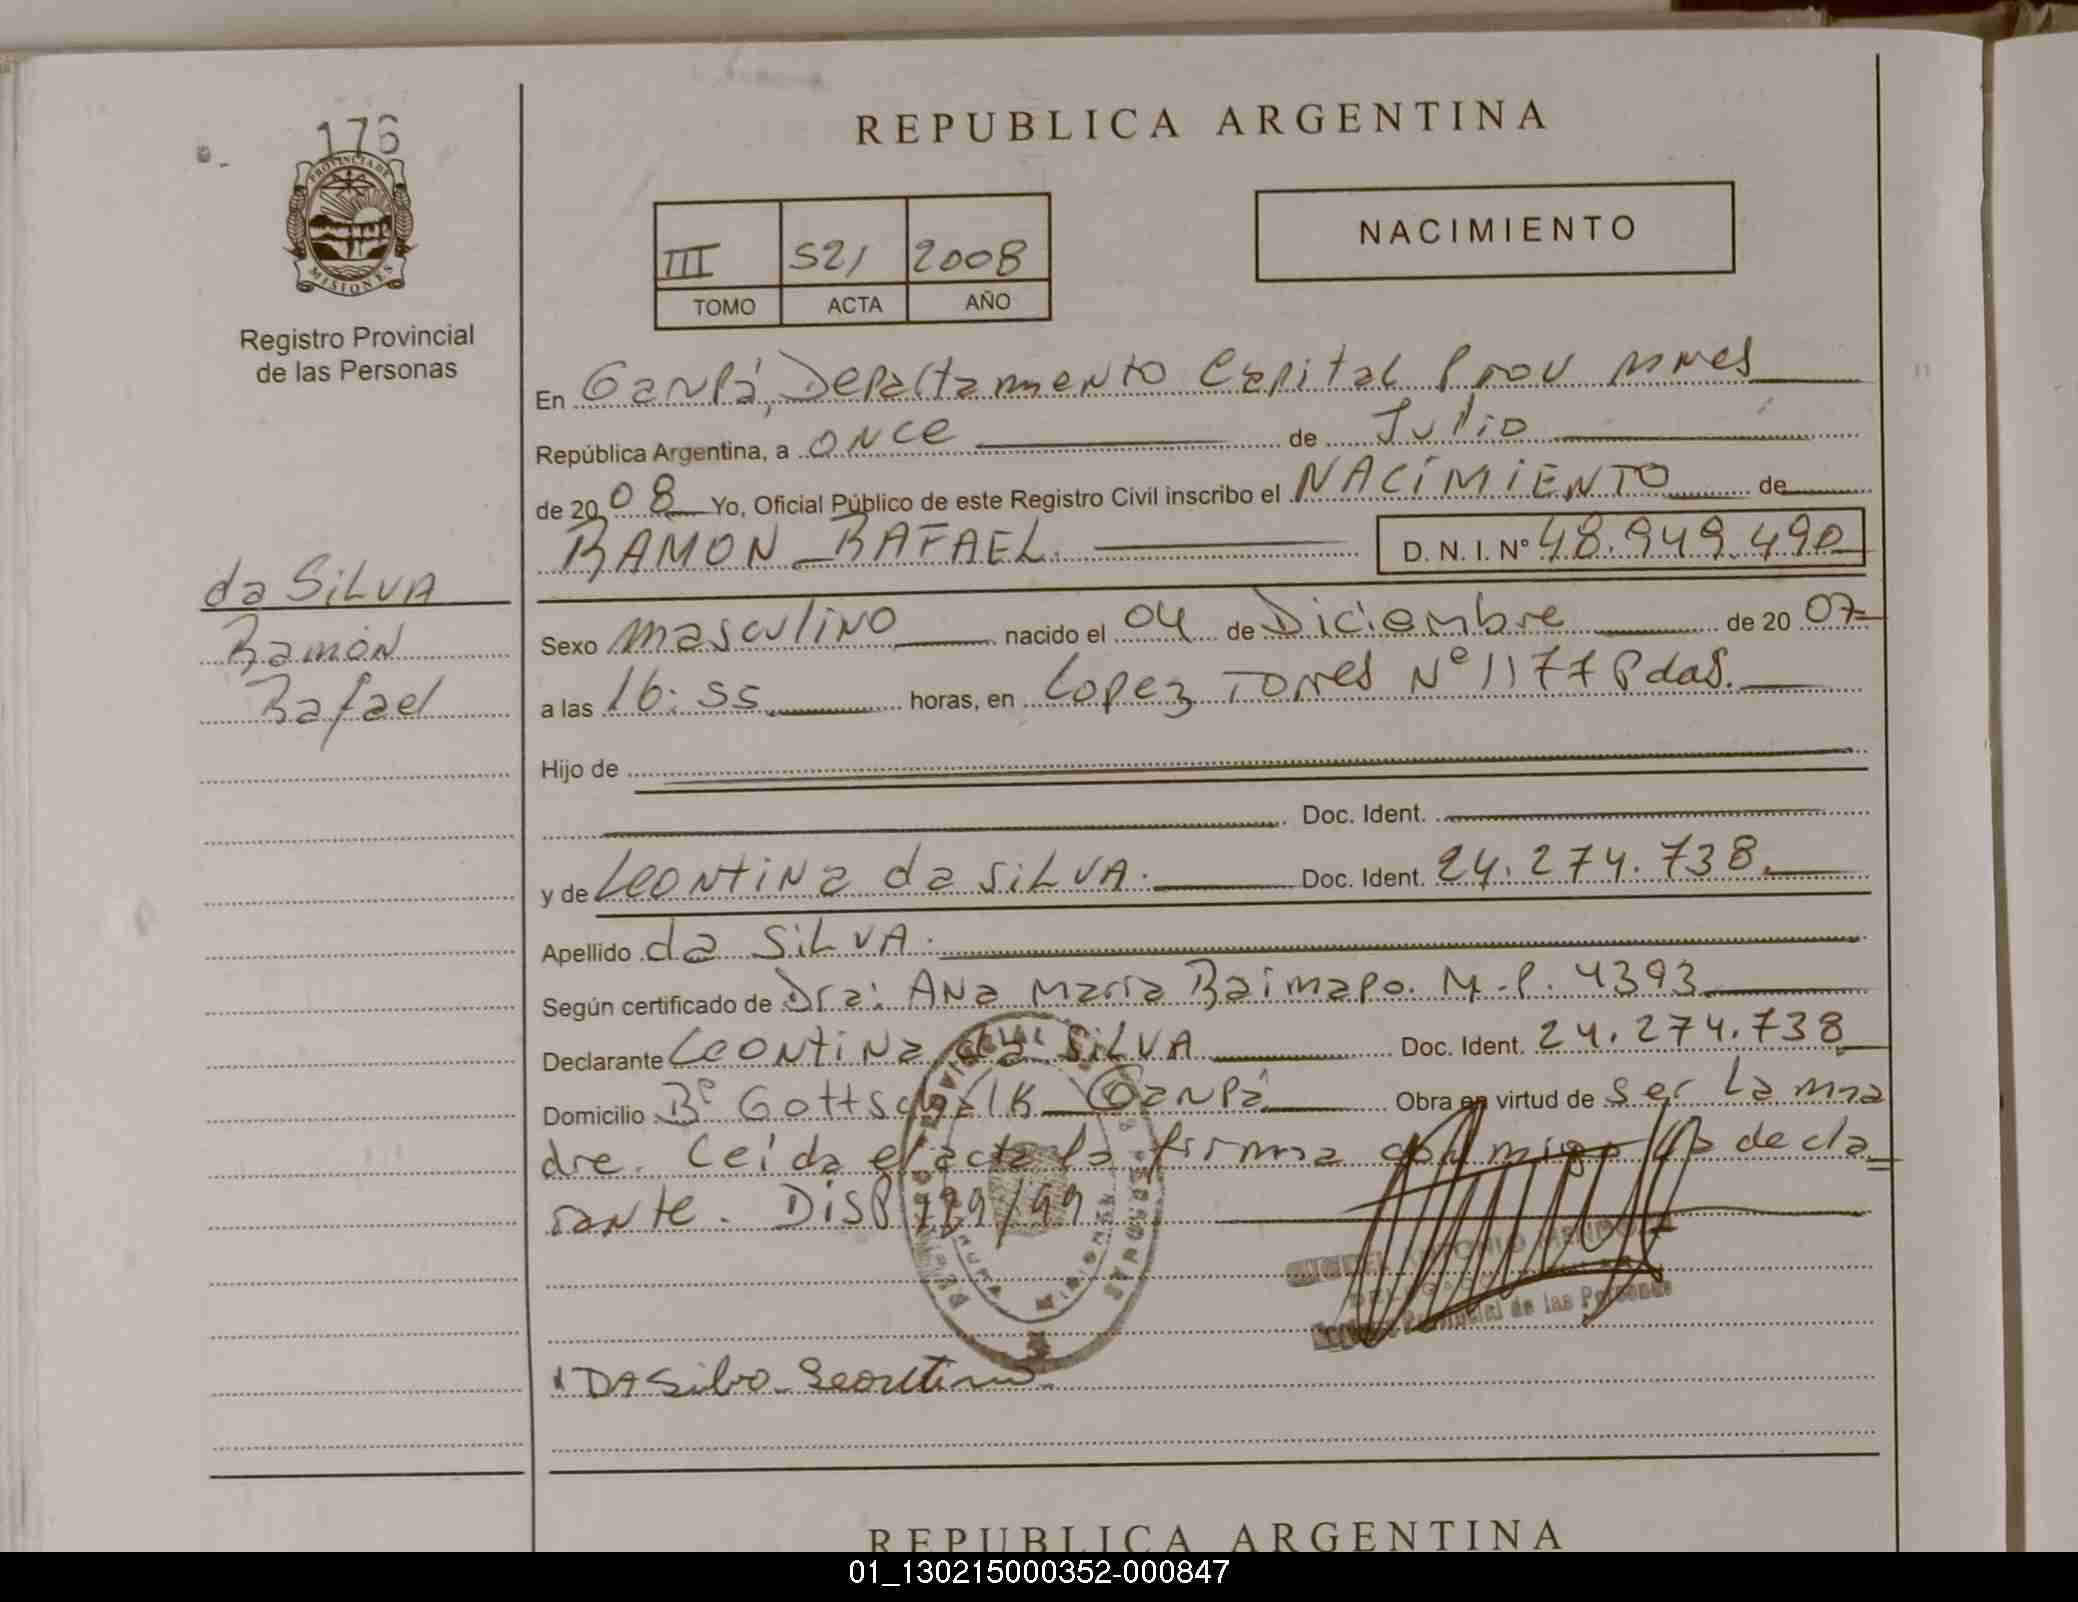 176
PROVINCIA DE
MISIONES
Registro Provincial
de las Personas
da SILVA
Ramón
Rafael
REPUBLICA ARGENTINA
III 521 2008
TOMO ACTA AÑO
NACIMIENTO
En Garupá, Departamento Capital Prov Mnes
República Argentina, a once de Julio
de 2008 Yo, Oficial Público de este Registro Civil inscribo el NACIMIENTO de
RAMON RAFAEL. D. N. I. Nº 48.949.490
Sexo masculino nacido el 04 de Diciembre de 2007
a las 16:55 horas, en Lopez Torres Nº 1177 Pdas.
Hijo de
Doc. Ident.
y de Leontina da SILVA. Doc. Ident. 24.274.738.
Apellido da SILVA.
Según certificado de Dra: Ana María M.P. 4393
Declarante Leontina da SILVA Doc. Ident. 24.274.738
Domicilio Bº Gottschalk Garupá Obra en virtud de ser la ma
dre. Leída el acta la firma conmigo la decla
rante. DISP 729/99
Provincial de las Personas
DA Silva Leontina
REPUBLICA ARGENTINA
01_130215000352-000847